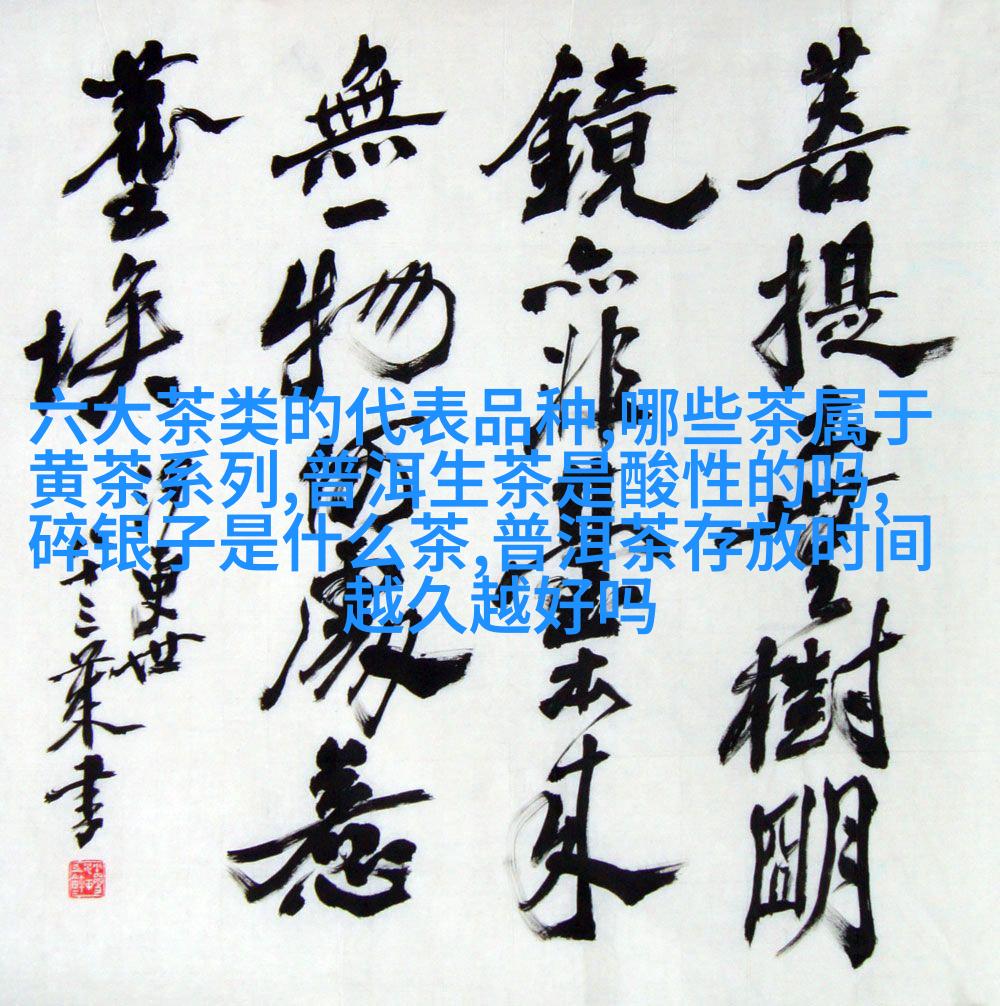 六大茶类的代表品种,哪些茶属于
黄茶系列,普洱生茶是酸性的吗,
碎银子是什么茶,普洱茶存放时间
越久越好吗
菩提本無樹明
鏡亦非臺本來
無一物何處惹
塵埃
更世
十三葉書